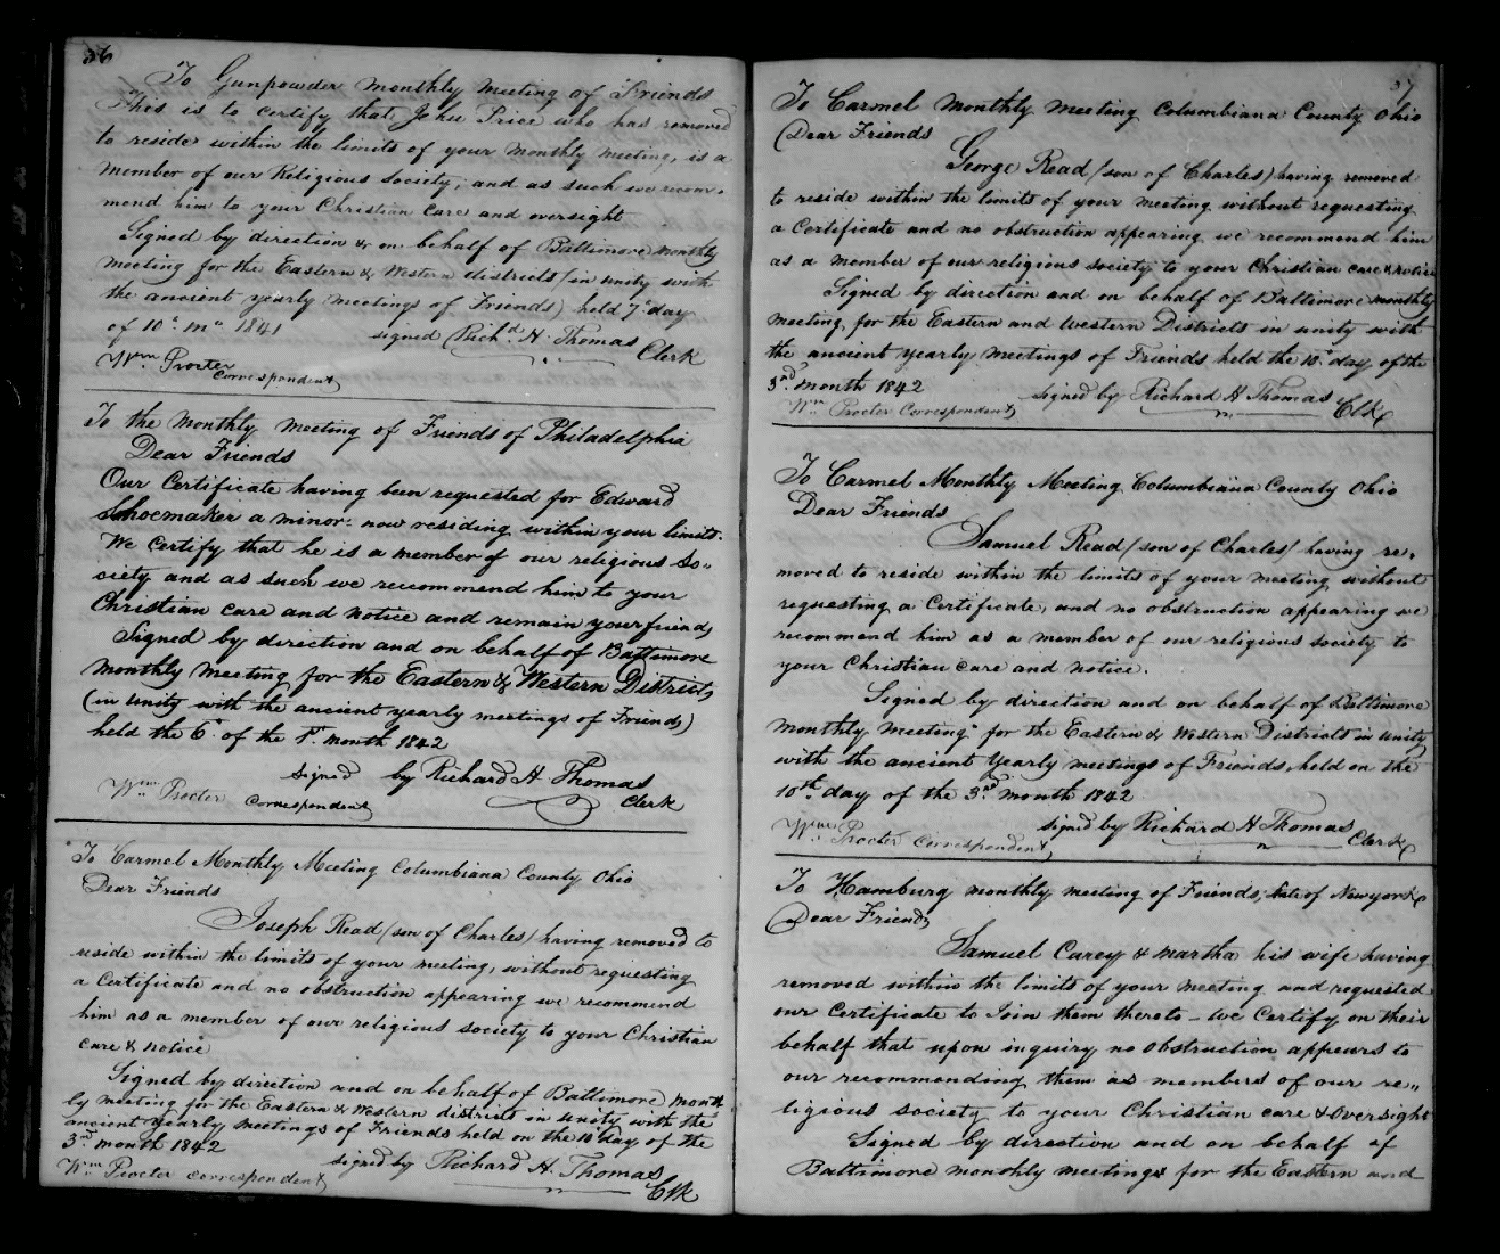 36
To Gunpowder Monthly Meeting of Friends
This is to certify that John Price who has removed
to reside within the limits of your Monthly meeting, is a
member of our Religious Society; and as such we recom-
mend him to your Christian care and oversight
Signed by direction & on behalf of Baltimore monthly
meeting for the Eastern & Western districts (in unity with
the ancient yearly meetings of Friends) held 7th day
of 10th mo 1841 signed Richd. H. Thomas
Clerk
Wm. Procter
Correspondent
To the Monthly Meeting of Friends of Philadelphia
Dear Friends
Our Certificate having been requested for Edward
Shoemaker a minor: now residing within your limits.
We certify that he is a member of our religious So-
ciety and as such we recommend him to your
Christian care and notice and remain your friends
Signed by direction and on behalf of Baltimore
Monthly Meeting for the Eastern & Western Districts
(in unity with the ancient yearly meetings of Friends)
held the 6th of the 1st. month 1842
signed by Richard H. Thomas
Clerk
Wm. Procter Correspondent
To Carmel Monthly Meeting Columbiana County Ohio
Dear Friends
Joseph Read (son of Charles) having removed to
reside within the limits of your meeting, without requesting
a Certificate and no obstruction appearing we recommend
him as a member of our religious society to your Christian
care & notice
Signed by direction and on behalf of Baltimore Month
ly meeting for the Eastern & Western districts in unity with the
ancient Yearly meetings of Friends held on the 10th day of the
3rd month 1842
signed by Richard H. Thomas
Clk
Wm Procter Correspondent
37
To Carmel Monthly Meeting Columbiana County Ohio
Dear Friends
George Read (son of Charles) having removed
to reside within the limits of your meeting without requesting
a Certificate and no obstruction appearing we recommend him
as a member of our religious society to your Christian care & notice
Signed by direction and on behalf of Baltimore monthly
meeting for the Eastern and Western Districts in unity with
the ancient yearly meetings of Friends held the 10th day of the
3rd. month 1842
signed by Richard H Thomas
Clk
Wm Procter Correspondent
To Carmel Monthly Meeting Columbiana County Ohio
Dear Friends
Samuel Read (son of Charles) having re-
moved to reside within the limits of your meeting without
requesting a Certificate, and no obstruction appearing we
recommend him as a member of our religious society to
your Christian care and notice.
Signed by direction and on behalf of Baltimore
Monthly Meeting for the Eastern & Western Districts in unity
with the ancient Yearly meetings of Friends, held on the
10th day of the 3rd month 1842
signed by Richard H Thomas
Clerk
Wm. Procter Correspondent
To Hamburg monthly meeting of Friends, State of New york
Dear Friends
Samuel Carey & Martha his wife having
removed within the limits of your meeting and requested
our Certificate to Join them thereto - We Certify on their
behalf that upon inquiry no obstruction appears to
our recommending them as members of our re-
ligious society to your Christian care & oversight
Signed by direction and on behalf of
Baltimore monthly meetings for the Eastern and